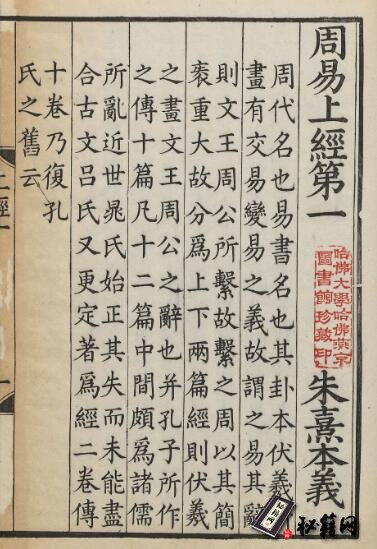 周易上經第一
哈佛大學哈佛燕京
圖書館珍藏印
朱熹本義
周代名也易書名也其卦本伏羲
畫有交易變易之義故謂之易其辭
則文王周公所繫故繫之周以其簡
袠重大故分爲上下兩篇經則伏羲
之畫文王周公之辭也并孔子所作
之傳十篇凡十二篇中間頗爲諸儒
所亂近世晁氏始正其失而未能盡
合古文吕氏又更定著爲經二卷傳
十卷乃復孔
氏之舊云
上經一
一
秘籍网
秘籍网